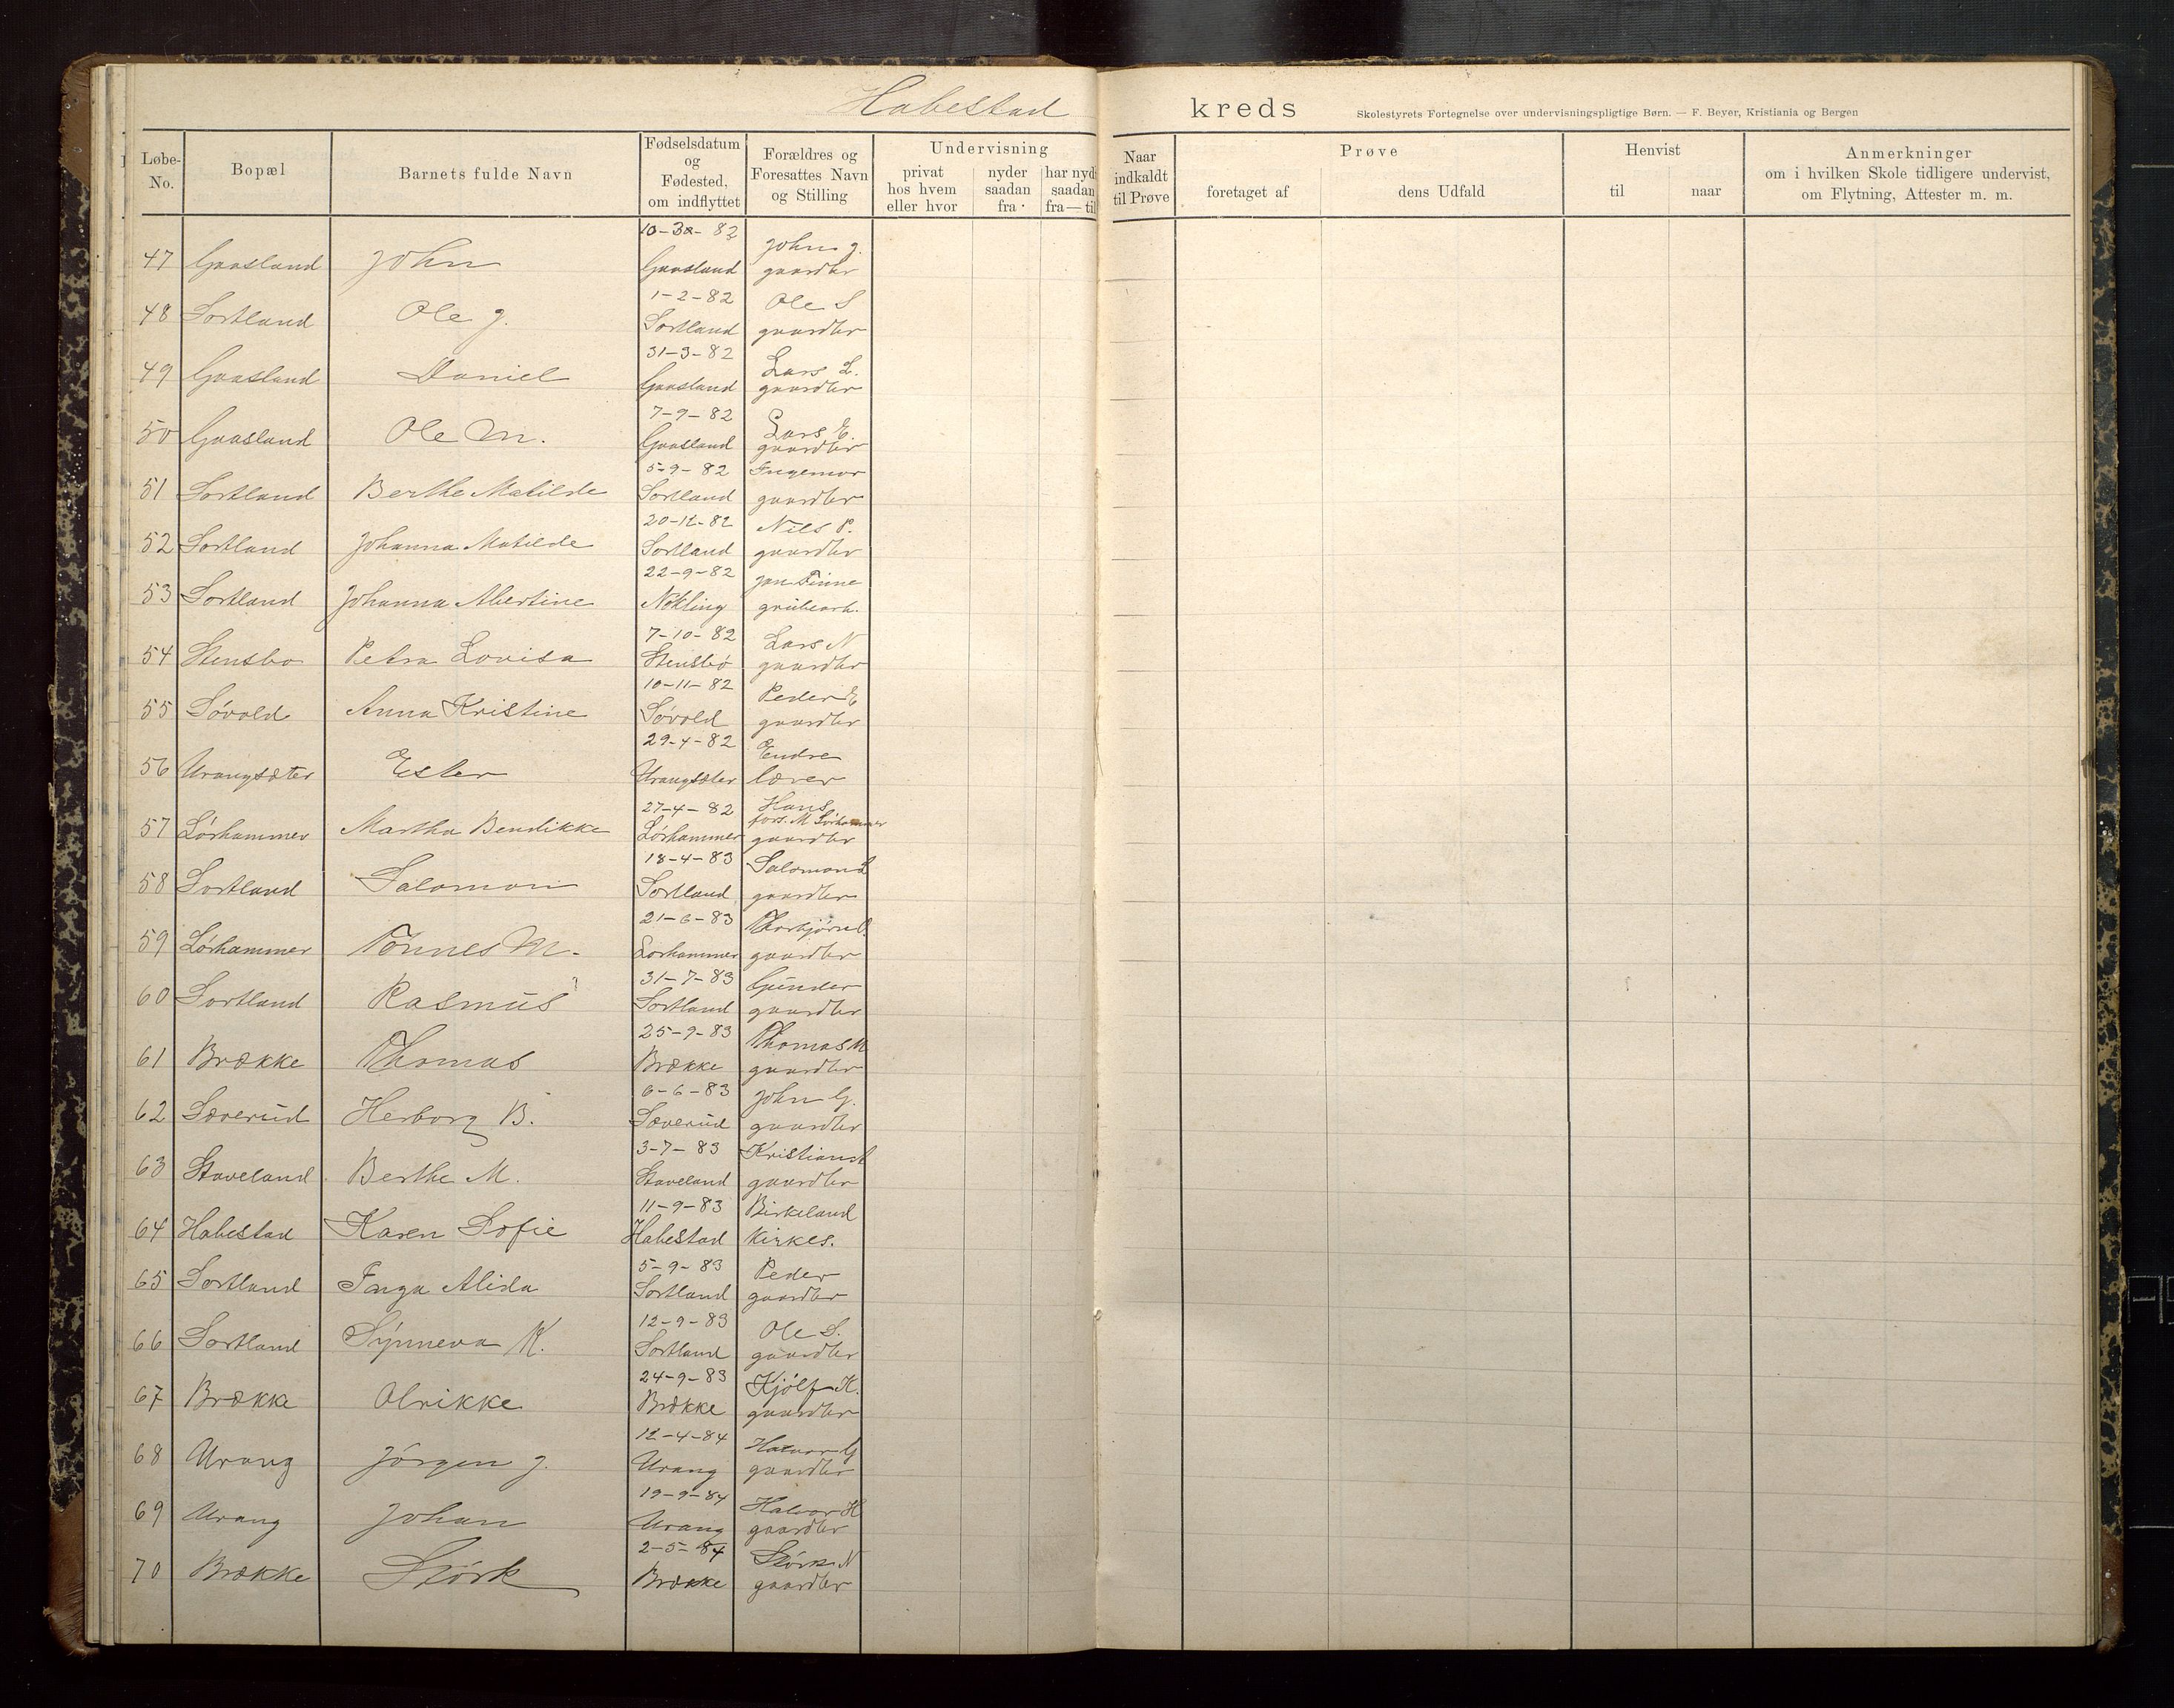 Habestad kreds Skolestyrets Fortegnelse over undervisningspligtige Børn. — F. Beyer, Kristiania og Bergen
Løbe-No. Bopæl Barnets fulde Navn Fødselsdatum og Fødested, om indflyttet Forældres og Foresattes Navn og Stilling Undervisning privat hos hvem eller hvor nyder saadan fra har nyd saadan fra — til Naar indkaldt til Prøve Prøve foretaget af dens Udfald Henvist til naar Anmerkninger om i hvilken Skole tidligere undervist, om Flytning, Attester m. m.
47 Gaasland John Gaasland John J. gaardbr
48 Sortland Ole J. 1-2-82 Sortland Ole S gaardbr
49 Gaasland Daniel 31-3-82 Gaasland Lars L. gaardbr
50 Gaasland Ole M. 7-9-82 Gaasland Lars E. gaardbr
51 Sortland Berthe Matilde 5-9-82 Sortland Ingemar gaardbr
52 Sortland Johanna Matilde 20-12-82 Sortland Nils P. gaardbr
53 Sortland Johanna Albertine 22-9-82 Nökling Jan Finne grübearb.
54 Stensbo Petra Lovisa 7-10-82 Stensbö Lars N gaardbr
55 Sövold Anna Kristine 10-11-82 Sövold Peder E gaardbr
56 Urangsæter Ester 29-4-82 Urangsæter Endre lærer
57 Lörhammer Martha Bendikke 27-4-82 Lörhammer Hans fors. M Lörhammer gaardbr
58 Sortland Salomon 18-4-83 Sortland Salomon gaardbr
59 Lörhammer Tönnes M. 21-6-83 Lörhammer Thorbjörn gaardbr
60 Sortland Rasmüs 31-7-83 Sortland Gunder gaardbr
61 Brække Thomas 25-9-83 Brække Thomas M gaardbr
62 Sæverüd Herborg B. 6-6-83 Sæverüd John G. gaardbr
63 Staveland Berthe M. 3-7-83 Staveland Kristian gaardbr
64 Habestad Karen Sofie 11-9-83 Habestad Birkeland Kirkes.
65 Sortland Inga Alida 5-9-83 Sortland Peder gaardbr
66 Sortland Synneva K. 12-9-83 Sortland Ole S. gaardbr
67 Brække Olrikke 24-9-83 Brække Kjölf K. gaardbr
68 Urang Jörgen J. 12-4-84 Urang gaardbr
69 Urang Johan 19-9-84 Urang Halvor H gaardbr
70 Brække Störk 2-5-84 Brække Störk N gaardbr